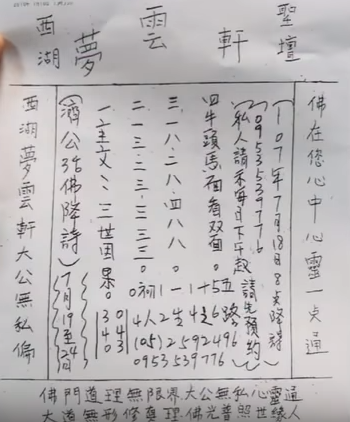 西湖夢雲軒聖壇
佛在您心中心靈點通
(107年7月18日8点降詩)
(0953539776)
(私人請示每日下午起請先預約)
四牛頭馬面看双面。
三一八.二八.四八八。
二一三.三三.三三三。
一主文:三世因果。
(濟公36佛降詩)
(7月19至24日)
0初一一十五路
04人2生4是6
(05)2592496
0953539776
西湖夢雲軒大公無私偏
佛門道理無限界大公無私心靈通
大道無形修真理佛光普照世緣人